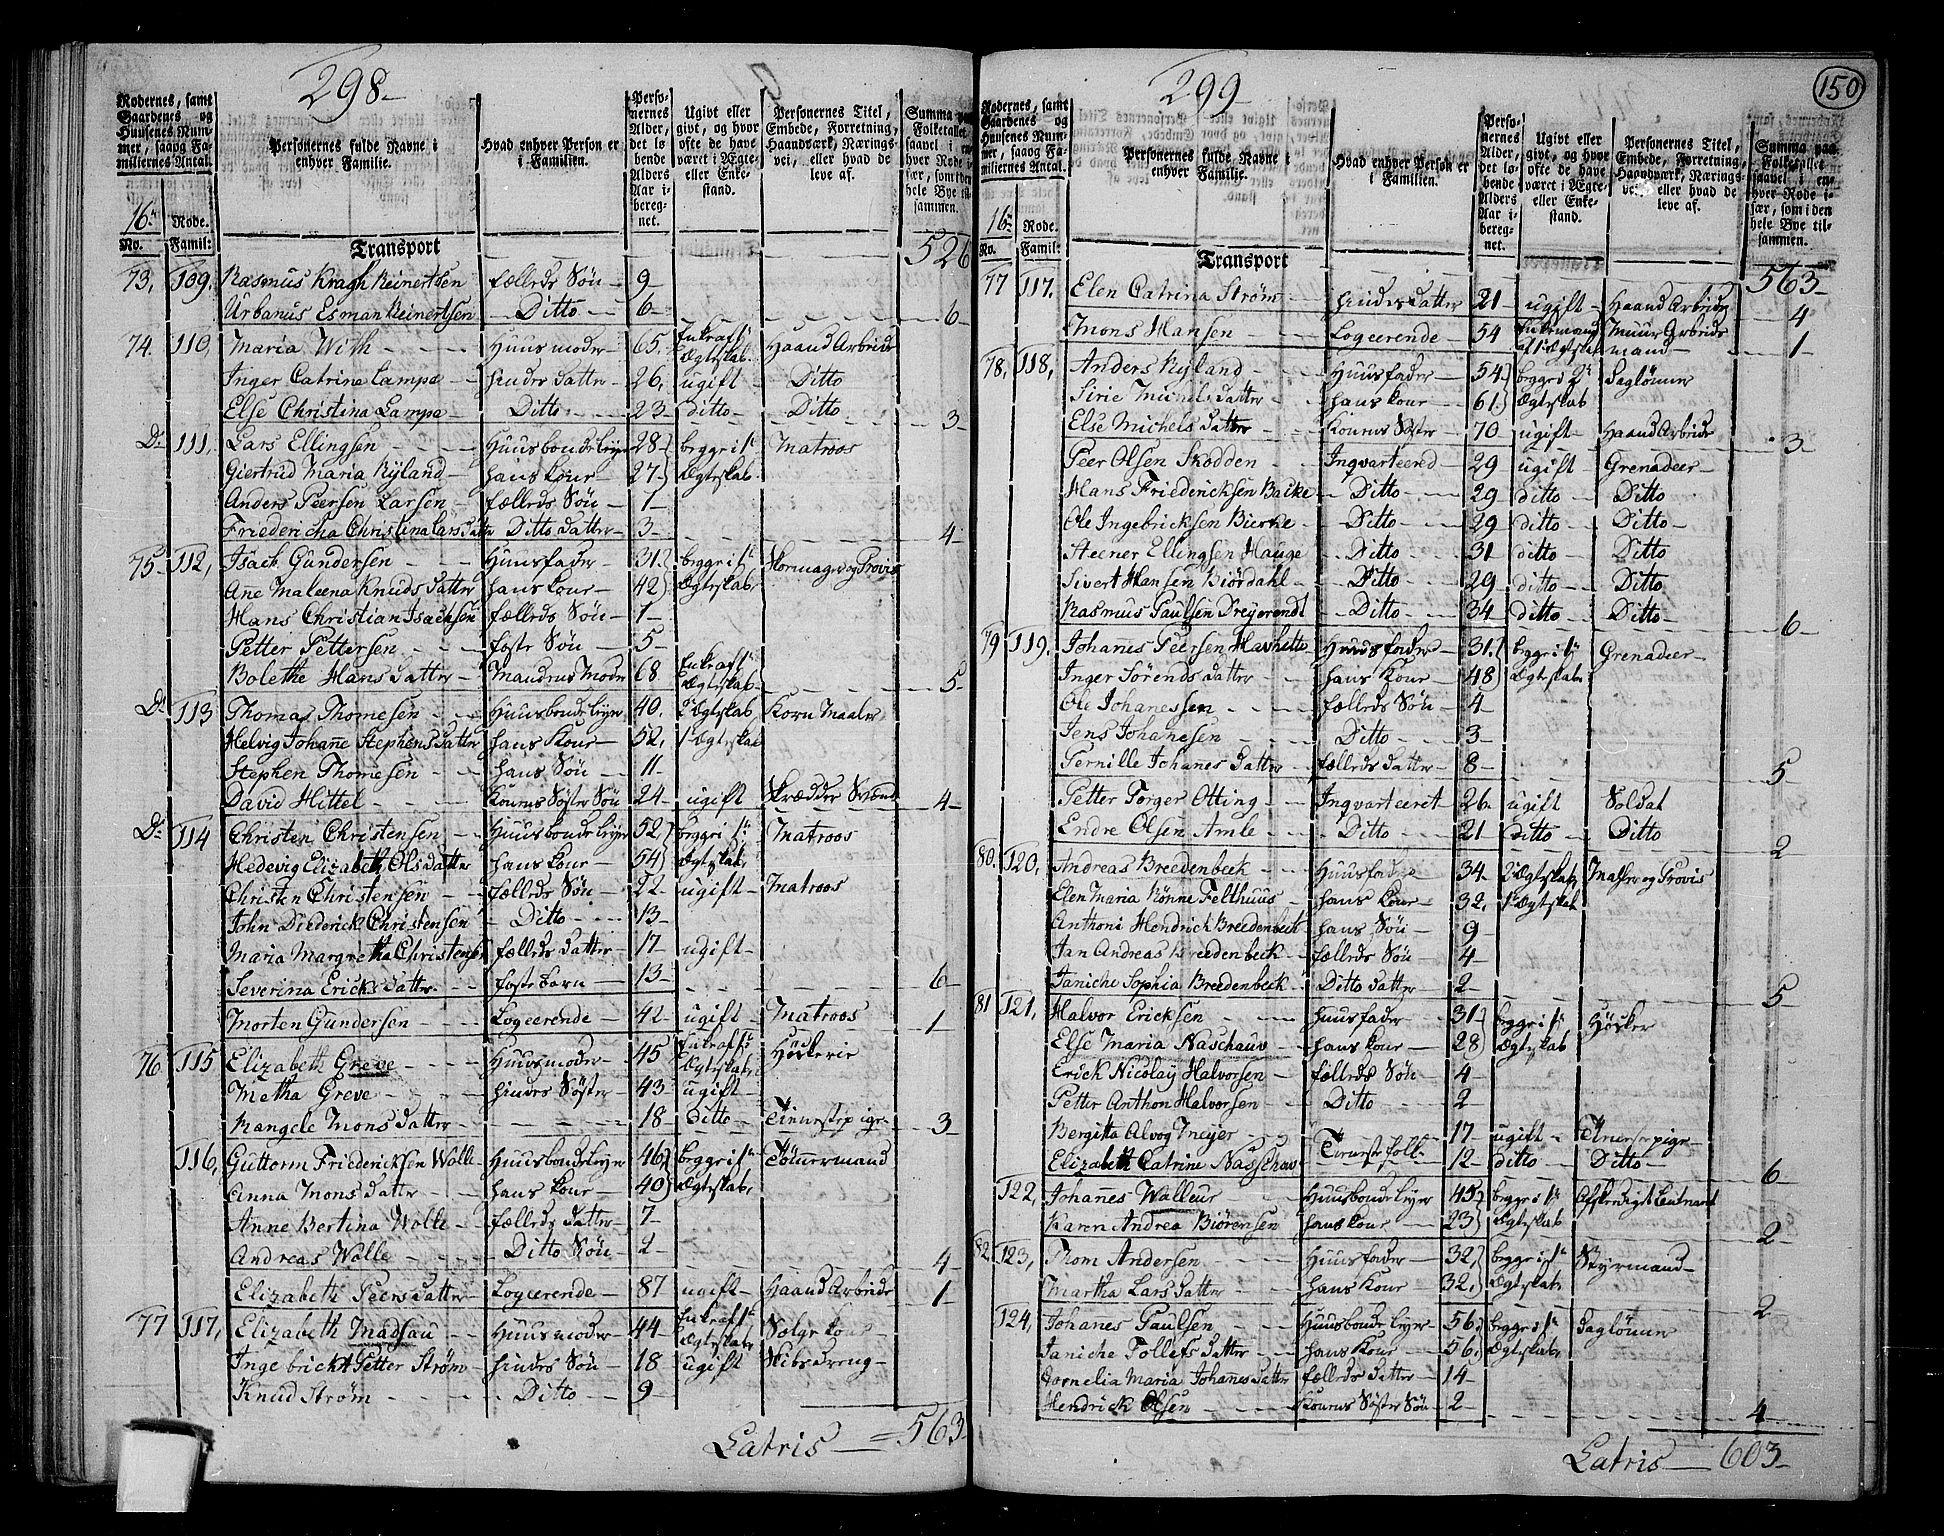 298
Rodernes, samt Gaardenes og Huusenes Nummer, saavog Familiernes Antal.
Personernes fulde Navne i enhver Familie.
Hvad enhver Person er i Familien.
Personernes Alder, det løbende Alders Aar iberegnet.
Ugivt eller givt, og hvor ofte de have været i Ægte- eller Enkestand.
Personernes Titel, Embede, Forretning, Haandværk, Næringsvei, eller hvad de leve af.
Summa paa Folketallet saavel i enhver Rode især, som i den hele Bye tilsammen.
16 Rode.
No. Famil:
Transport 526
73, 109, Rasmus Kragh Reinertsen fælleds Søn 9
Urbanus Esman Reinertsen Ditto 6 6
74. 110, Maria With Huusmoder 65. Enke af 1 Ægteskab Haand Arbeide
Inger Catrina Lampe hindes Datter 26, ugift Ditto
Else Christina Lampe Ditto 23 ditto Ditto 3
Do 111, Lars Ellingsen Huusbonde leyer 28 begge i 1 Matroos
Giertrud Maria Ryland hans Kone 27 Ægteskab
Anders Peersen Larsen fælleds Søn 1
Friedericha Christina Lars datter Ditto datter 3 4
75 112, Isack Gundersen Huusfader 31 begge i 1
Ane Maleena Knuds datter hans Kone 42 Ægteskab
Hans Christian Isachsen fælleds Søn 1
Petter Pettersen foster Søn 5
Bolethe Hans datter Mandens Moder 68 Enke af 1 Ægteskab 5
Do 113 Thomas Thomesen Huusbonde leyer 40, 2 Ægteskab Korn Maaler
Helvig Johanne Stephens datter hans Kone 52, 1 Ægteskab
Stephen Thomesen hans Søn 11
David Hittel Konens Søster Søn 24 ugift Skrædder Svend 4
Do 114 Christen Christensen Huusbonde leyer 52 begge i 1 Matroos
Hedevig Elizabeth Ols datter hans Kone 54 Ægteskab
Christen Christensen fælleds Søn 22 ugift Matroos
John Diederick Christensen Ditto 13
Maria Margretha Christens fælleds datter 17 ugift
Severina Ericks datter foster barn 13 6
Morten Gundersen Logeerende 42 ugift Matroos 1
76 115 Elizabeth Greve Huusmoder 45 Enke af 1 Ægteskab Høkerie
Metha Greve hindes Søster 43 ugift
Mangele Mons datter 18 Ditto Tienestepige 3
116, Guttorm Friedericksen Wolle Huusbonde leyer 46 begge i 1 Tømmermand
Anna Mons datter hans Kone 40 Ægteskab
Anne Bertina Wolle fælleds datter 7
Andreas Wolle Ditto Søn 2 4
Elizabeth Peers datter Logeerende 87 ugift Haand Arbeide 1
77 117, Elizabeth Madsau Huusmoder 44 Enke af 1 Ægteskab Sælge kone
Ingebrickt Petter Strøm hindes Søn 18 ugift Skibsdreng
Knud Strøm Ditto 9
Latris 563
150
299
Rodernes, samt Gaardenes og Huusenes Nummer, saavog Familiernes Antal.
Personernes fulde Navne i enhver Familie.
Hvad enhver Person er i Familien.
Personernes Alder, det løbende Alders Aar iberegnet.
Ugivt eller givt, og hvor ofte de have været i Ægte- eller Enkestand.
Personernes Titel, Embede, Forretning, Haandværk, Næringsvei, eller hvad de leve af.
Summa paa Folketallet saavel i enhver Rode især, som i den hele Bye tilsammen.
16 Rode.
No. Famil:
Transport 563
77 117. Elen Catrina Strøm hindes datter 21 ugift Haand Arbeide 4
Mons Hansen Logeerende 54 Enkemand af 1 Ægteskab Muur Arbeidsmand 1
78, 118, Anders Ryland Huusfader 54 begge i 2 Daglønner
Sirie Michels datter hans Kone 61 Ægteskab
Else Michels datter Konens Søster 70 ugift Haand Arbeide 3
Peer Olsen Skodden Ingvarteered 29 ugift Grenadeer
Hans Friedericksen Bakke Ditto 29 ditto Ditto
Ole Ingebricksen Ditto 29 ditto Ditto
Steener Ellingsen Hauge Ditto 31 ditto Ditto
Sivert Hansen Biørdahl Ditto 29 ditto Ditto
Rasmus Paulsen Ditto 34 ditto Ditto 6
79 119. Johannes Peersen Huusfader 31 begge i 1 Grenadeer
Inger Sørends datter hans Kone 48 Ægteskab
Ole Johanessen fælleds Søn 4
Jens Johanesen Ditto 3
Pernille Johanes datter fælleds datter 8 5
Petter Torger Otting Ingvarteeret 26 ugift Soldat
Endre Olsen Amle Ditto 21 Ditto Ditto 2
80. 120, Andreas Breedenbeck Huusfader 34 2 Ægteskab
Elen Maria Rønne Felthuus hans Kone 32, 1 Ægteskab
Anthoni Hendrick Breedenbeck hans Søn 9
Jan Andreas Breedenbeck fælleds Søn 4
Janiche Sophia Breedenbeck Ditto datter 2 5
81 121, Halvor Ericksen Huusfader 31 begge i 1 Høker
Else Maria Naschauv hans Kone 28 Ægteskab
Erick Nicolay Halvorsen fælleds Søn 4
Petter Anthon Halvorsen Ditto 2
Bergitta Alvog Meyer Tieneste folk 17 ugift Tieneste pige
Elizabeth Catrine Naschau 12 ditto Ditto 6
122, Johannes Walleur Huusbonde leyer 45 begge i 1 Afskeediget Leutnant
Karen Andrea Biørensen hans Kone 23 Ægteskab 2
82 123, Thom Andersen Huusfader 32 begge i 1 Styrmand
Martha Lars datter hans Kone 32 Ægteskab 2
124, Johanes Paulsen Huusbonde leyer 56 begge i 1 Daglønner
Janiche Tollefs datter hans Kone 56 Ægteskab
Cornelia Maria Johanes datter fælleds datter 14
Hendrick Olsen Konens Søster Søn 2 4
Latris 603